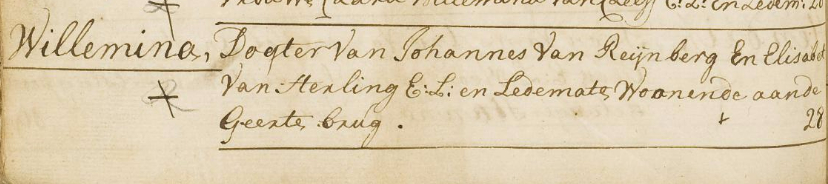 Willemina, Dogter Van Johannes Van Reijnberg En Elisabet
Van Herling E: L: en Ledemate Woonende aande
Geerte brug . 28